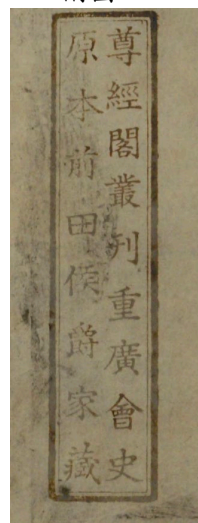 尊經閣叢刊重廣會史
原本前田侯爵家藏